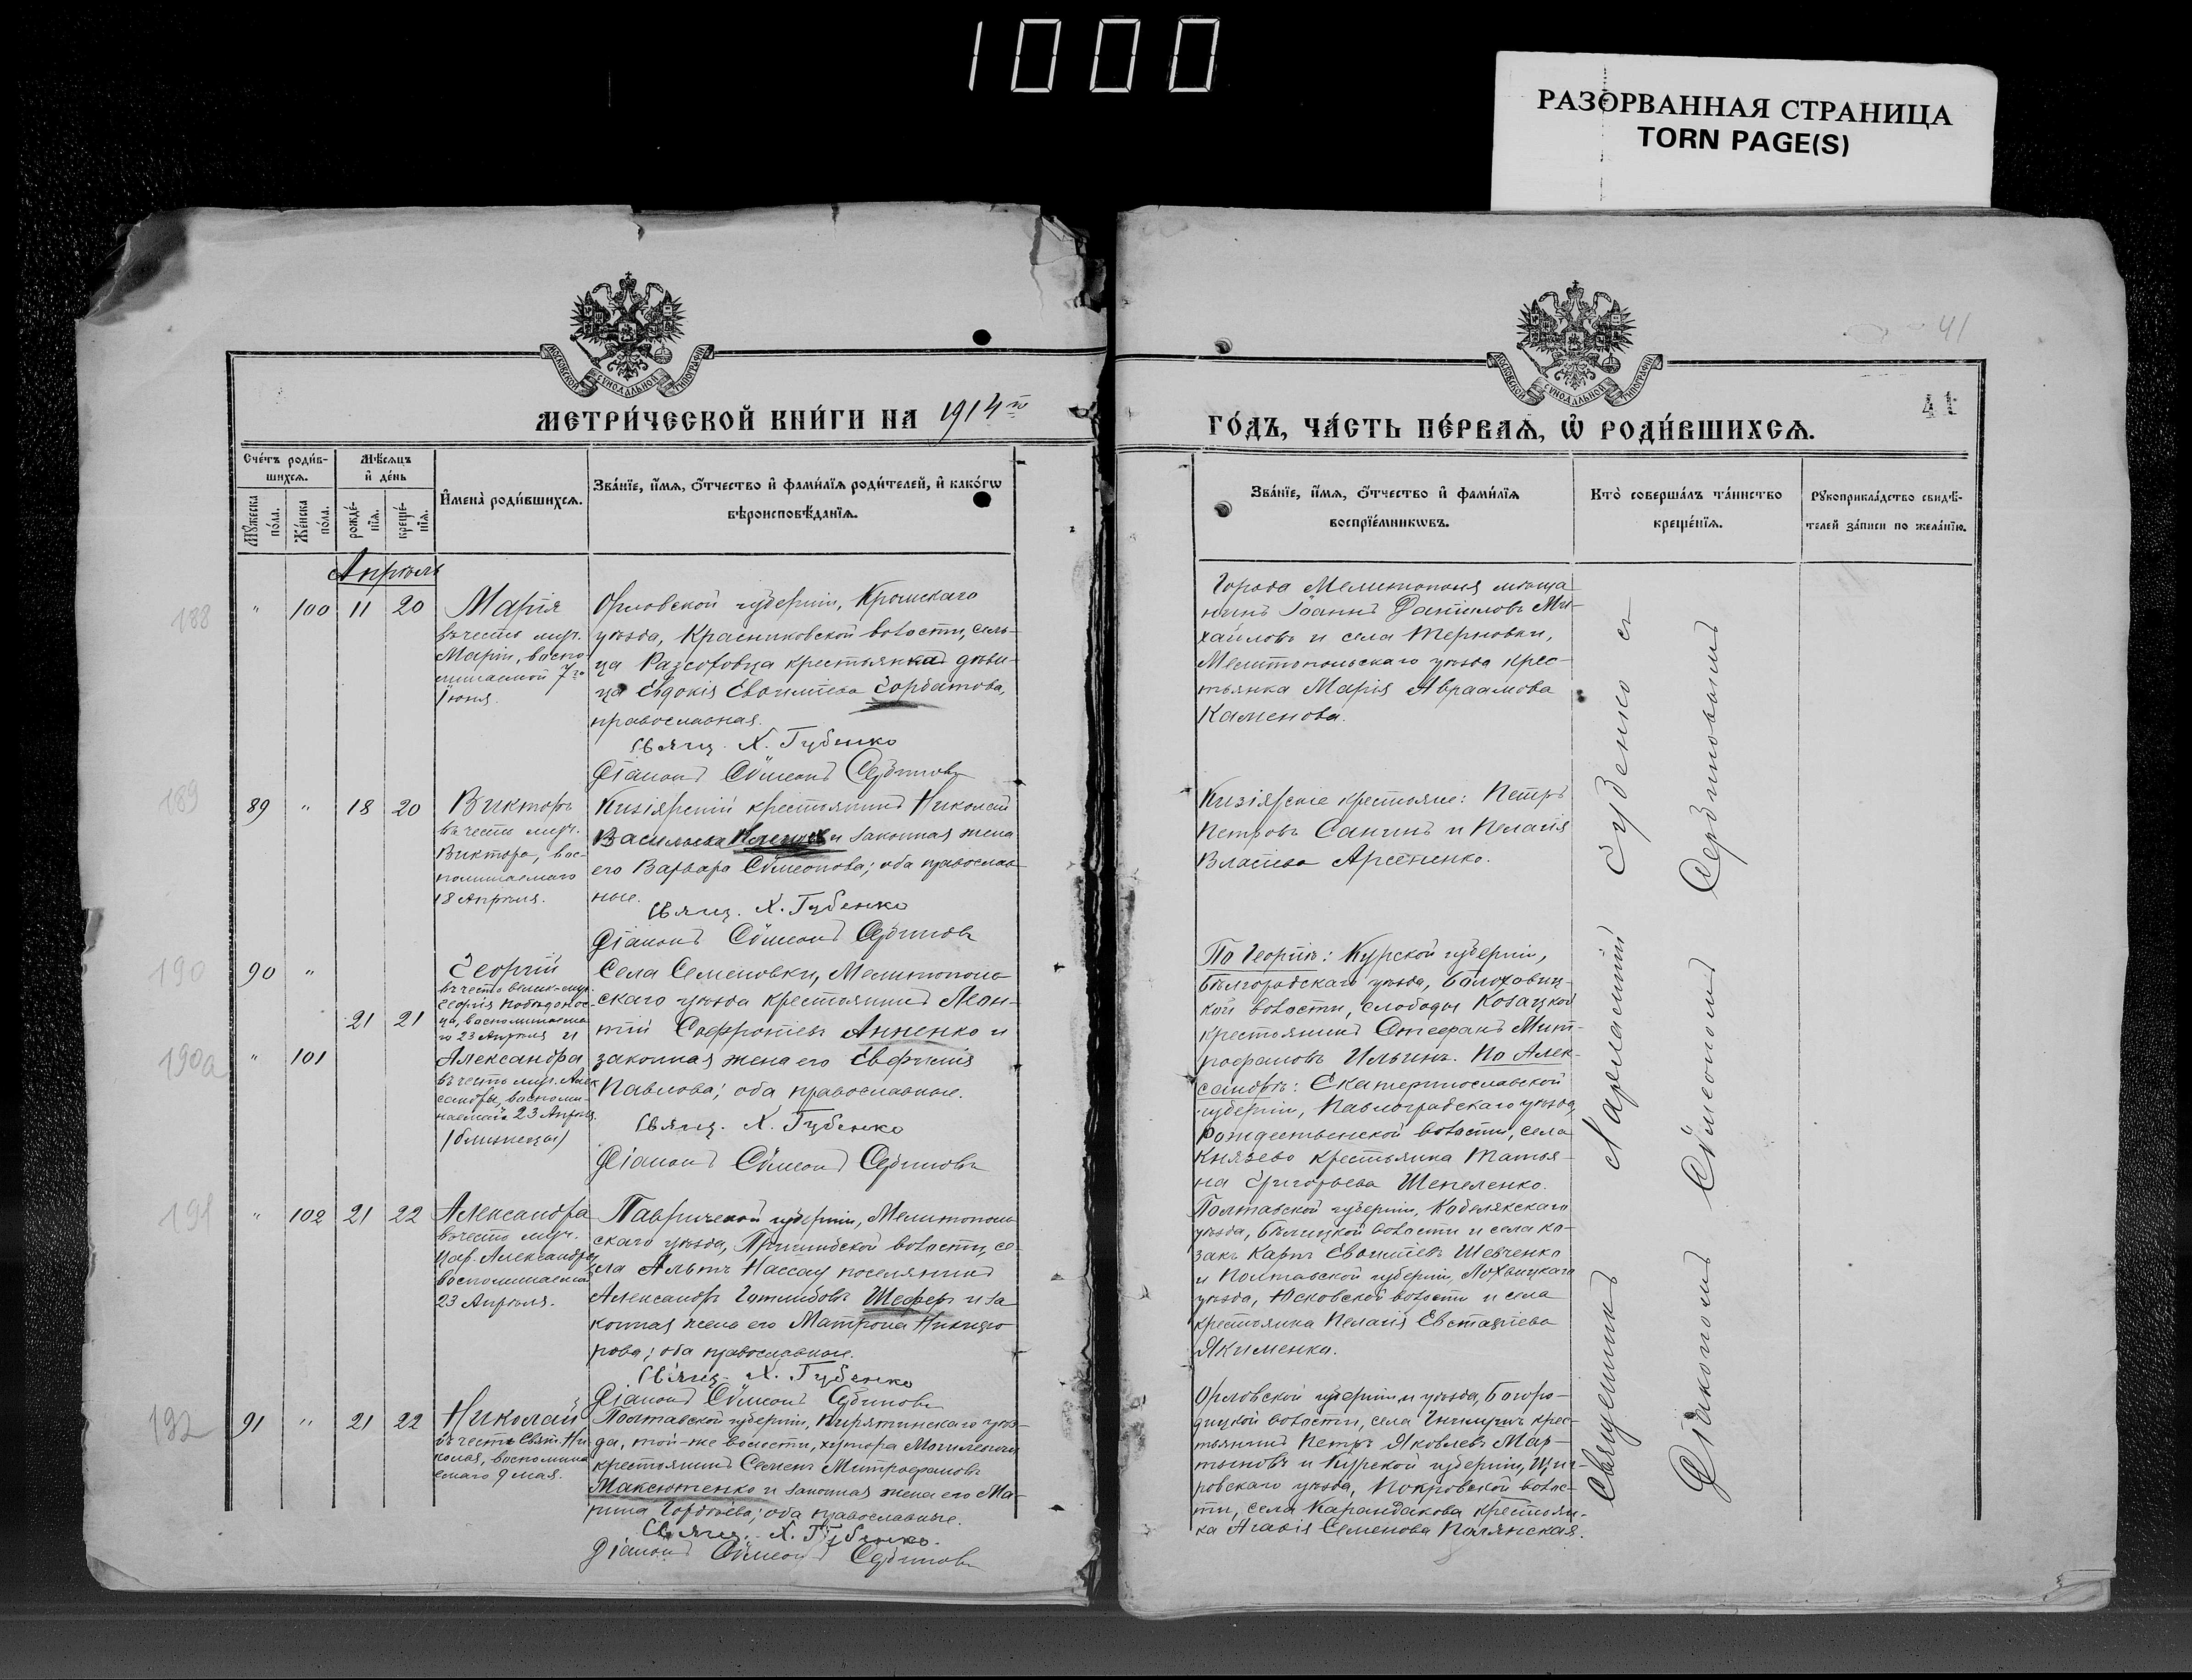 1000
РАЗОРВАННАЯ СТРАНИЦА
TORN PAGE(S)
МОСКОВСКОЙ СѴНОДАЛЬНОЙ ТИПОГРАФІИ
МЕТРИ́ЧЕСКОЙ КНИ́ГИ НА 1914й
Сче́тъ роди́в-
шихсѧ.
Мꙋ́жеска по́ла.
Же́нска по́ла.
Мѣ́сѧцъ
и҆ де́нь
рожде́-
нїѧ.
креще́-
нїѧ.
И҆мена̀ роди́вшихсѧ.
Зва́нїе, и҆́мѧ, ѻ҆́тчество и҆ фами́лїѧ роди́телей, и҆ како́гѡ
вѣроисповѣ́данїѧ.
Апрѣль
188
" 100 11 20
Марія
въ честь муч.
Маріи, воспо-
минаемой 7го
Іюня.
Орловской губерніи, Кромскаго
уѣзда, Красниковской волости, сель-
ца Разсоховца крестьянка дѣви-
ца Евдокія Евѳиміева Горбатова,
православная.
Свящ. Х. Губенко
Діаконъ Сѷмеонъ Сербиновъ
189
89 " 18 20
Викторъ
въ честь муч.
Виктора, вос-
поминаемаго
18 Апрѣля.
Кизіярскій крестьянинъ Николай
Васильевъ и законная жена
его Варвара Сѷмеонова; оба православ-
ные.
Свящ. Х. Губенко
Діаконъ Сѷмеонъ Сербиновъ
190
90 "
21 21
190а
" 101
Георгій
въ честь велик-муч.
Георгія Побѣдонос-
ца, воспоминаема-
го 23 Апрѣля и
Александра
въ честь муч. Алек-
сандры, воспоми-
наемой 23 Апрѣля.
(близнецы)
Села Семеновки, Мелитополь-
скаго уѣзда крестьянинъ Леон-
тій Софроніевъ Анненко и
законная жена его Евфимія
Павлова; оба православные.
Свящ. Х. Губенко
Діаконъ Сѷмеонъ Сербиновъ
191
" 102 21 22
Александра
въ честь муч.
цар. Александры
воспоминаемой
23 Апрѣля.
Таврической губерніи, Мелитополь-
скаго уѣзда, Пришибской волости, се-
ла Альтъ Нассау поселянинъ
Александръ Готлибовъ Шеферъ и за-
конная жена его Матрона Никифо-
рова; оба православные.
Свящ. Х. Губенко
Діаконъ Сѷмеонъ Сербиновъ
192
91 " 21 22
Николай
въ честь Свят. Ни-
колая, воспомина-
емаго 9 мая.
Полтавской губерніи, Пирятинскаго уѣз-
да, той-же волости, хутора
крестьянинъ Семенъ Митрофановъ
Максютенко и законная жена его Ма-
рина Гордѣева; оба православные.
Свящ. Х. Губенко.
Діаконъ Сѷмеонъ Сербиновъ
41
41
ГО́ДЪ, ЧА́СТЬ ПЕ́РВАѦ, Ѡ҆ РОДИ́ВШИХСѦ.
МОСКОВСКОЙ СѴНОДАЛЬНОЙ ТИПОГРАФІИ
Зва́нїе, и҆́мѧ, ѻ҆́тчество и҆ фами́лїѧ
воспрїе́мникѡвъ.
Кто̀ соверша́лъ та́инство
креще́нїѧ.
Рꙋкоприкла́дство свидѣ́-
телей за́писи по жела́нїю.
Города Мелитополя мѣща-
нинъ Іоаннъ Даниловъ Ми-
хайловъ и села Терновки,
Мелитопольскаго уѣзда крес-
тьянка Марія Авраамова
Каменова.
Кизіярскіе крестьяне: Петръ
Петровъ Санинъ и Пелагія
Власіева Арсененко.
По Георгіѣ: Курской губерніи,
Бѣлгородскаго уѣзда, Болховец-
кой волости, слободы Козацкой
крестьянинъ Стефанъ Мит-
рофановъ Ильинъ. По Алек-
сандрѣ: Екатеринославской
губерніи, Павлоградскаго уѣзда,
Рождественской волости, села
Князево крестьянка Татья-
на Григорьева Шепеленко.
Полтавской губерніи, Кобелякскаго
уѣзда, Бѣлицкой волости и села ко-
закъ Карпъ Евѳиміевъ Шевченко
и Полтавской губерніи, Лохвицкаго
уѣзда, Юсковской волости и села
крестьянка Пелагія Евстаѳіева
Якименко.
Орловской губерніи и уѣзда, Богоро-
дицкой волости, села крес-
тьянинъ Петръ Яковлевъ Мар-
тыновъ и Курской губерніи, Щиг-
ровскаго уѣзда, Покровской волос-
ти, села Карандакова крестьян-
ка Агаѳія Семенова Полянская.
Священникъ Харлампій Губенко съ
Діакономъ Сѷмеономъ Сербиновымъ